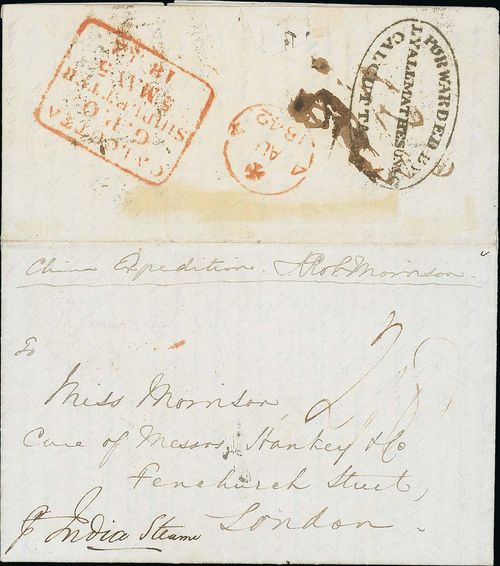 CALCUTTA
G. P. O.
SHIP LETTER
MAY 5
1842
A
AU
1842
FORWARDED BY
LYALL MATHESON & Co
CALCUTTA
China Expedition. Robt Morrison
To
Miss Morrison,
2/8
Care of Messrs Hankey & Co
Fenchurch Street,
London.
P India Steamer